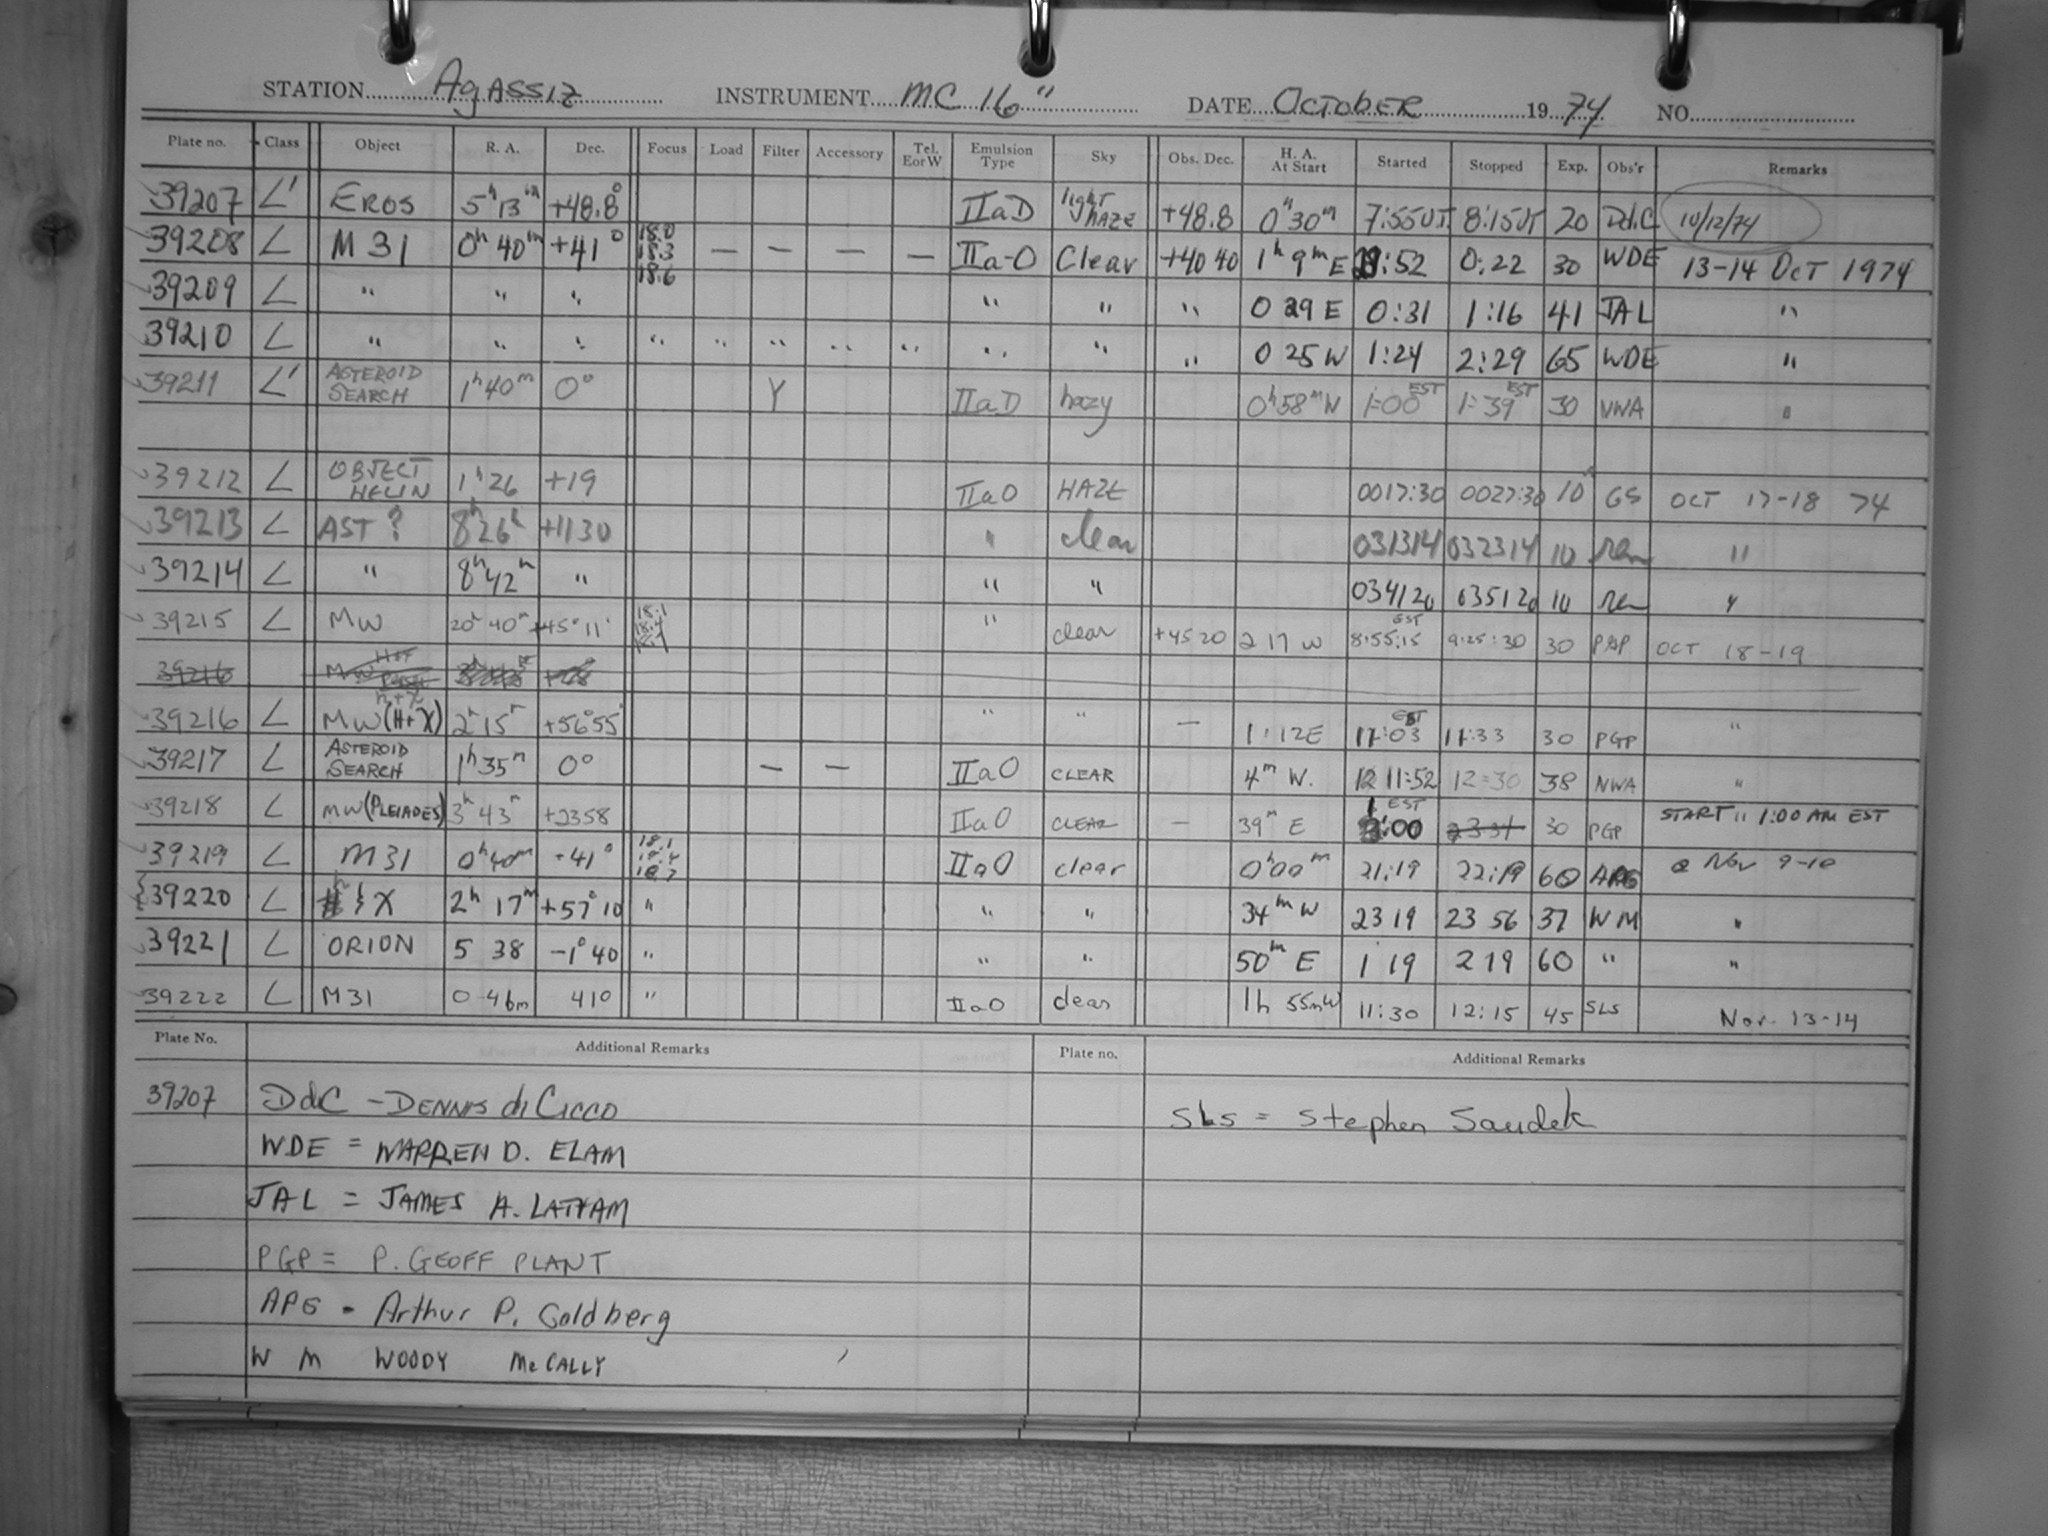 STATION Agassiz INSTRUMENT MC 16" DATE OCTOBER 1974 NO.
Plate no. Class Object R. A. Dec. Focus Load Filter Accessory Tel. E or W Emulsion Type Sky Obs. Dec. H. A. At Start Started Stopped Exp. Obs'r Remarks
39207 L' EROS 5h 13m +48.8° IIaD light haze +48.8 0h 30m 7:55UT 8:15UT 20 DdiC 10/12/74
39208 L M 31 0h 40m +41° 18.0 18.3 18.6 — — — — IIa-O Clear +40 40 1h 9m E :52 0:22 30 WDE 13-14 OCT 1974
39209 L " " " " " " 0 29 E 0:31 1:16 41 JAL "
39210 L " " " " " " " " " " " 0 25 W 1:24 2:29 65 WDE "
39211 L' ASTEROID SEARCH 1h 40m 0° Y IIaD hazy 0h 58m W 1:00 EST 1:39 EST 30 NWA "
39212 L OBJECT HELIN 1h 26 +19 IIaO HAZE 0017:30 0027:30 10 GS OCT 17-18 74
39213 L AST ? 8h 26 +11 30 " clear 031314 032314 10 "
39214 L " 8h 42m " " " 034120 035120 10 "
39215 L MW 20h 40m +45° 11' 18.1 18.4 18.7 " clear +45 20 2 17 W 8:55:15 EST 9:25:30 30 PGP OCT 18-19
39216 MW
39216 L MW (H+X) h+χ 2h 15m +56° 55' " " — 1:12E 11:03 EST 11:33 30 PGP "
39217 L ASTEROID SEARCH 1h 35m 0° — — IIaO CLEAR 4m W. 12 11:52 12:30 38 NWA "
39218 L MW (PLEIADES) 3h 43m +2358 IIaO CLEAR — 39m E 1:00 EST 30 PGP START :: 1:00 AM EST
39219 L M31 0h 40m +41° 18.1 18.4 18.7 IIaO clear 0h 00m 21:19 22:19 60 APG Nov 9-10
39220 L h & X 2h 17m +57° 10 " " " 34m W 23 19 23 56 37 WM "
39221 L ORION 5 38 -1° 40 " " " 50m E 1 19 2 19 60 " "
39222 L M31 0 46m 410 " IIaO clear 1h 55mW 11:30 12:15 45 SLS Nov. 13-14
Plate No. Additional Remarks Plate no. Additional Remarks
39207 DdiC - DENNIS di CICCO SLS = Stephen Saudek
WDE = WARREN D. ELAM
JAL = JAMES A. LATHAM
PGP = P. GEOFF PLANT
APG - Arthur P. Goldberg
W M WOODY McCALLY